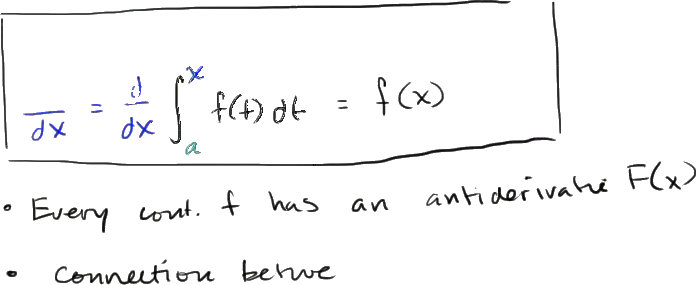 /dx = d/dx ∫_a^x f(t) dt = f(x)
• Every cont. f has an antiderivative F(x)
• connection betwe